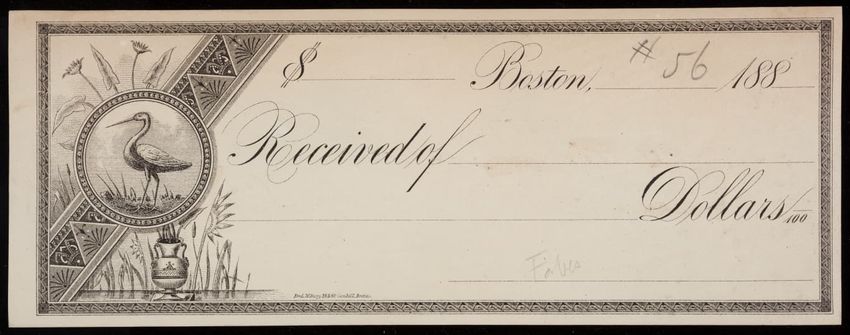 $ Boston, #56 188
Received of
Dollars/100
Forbes